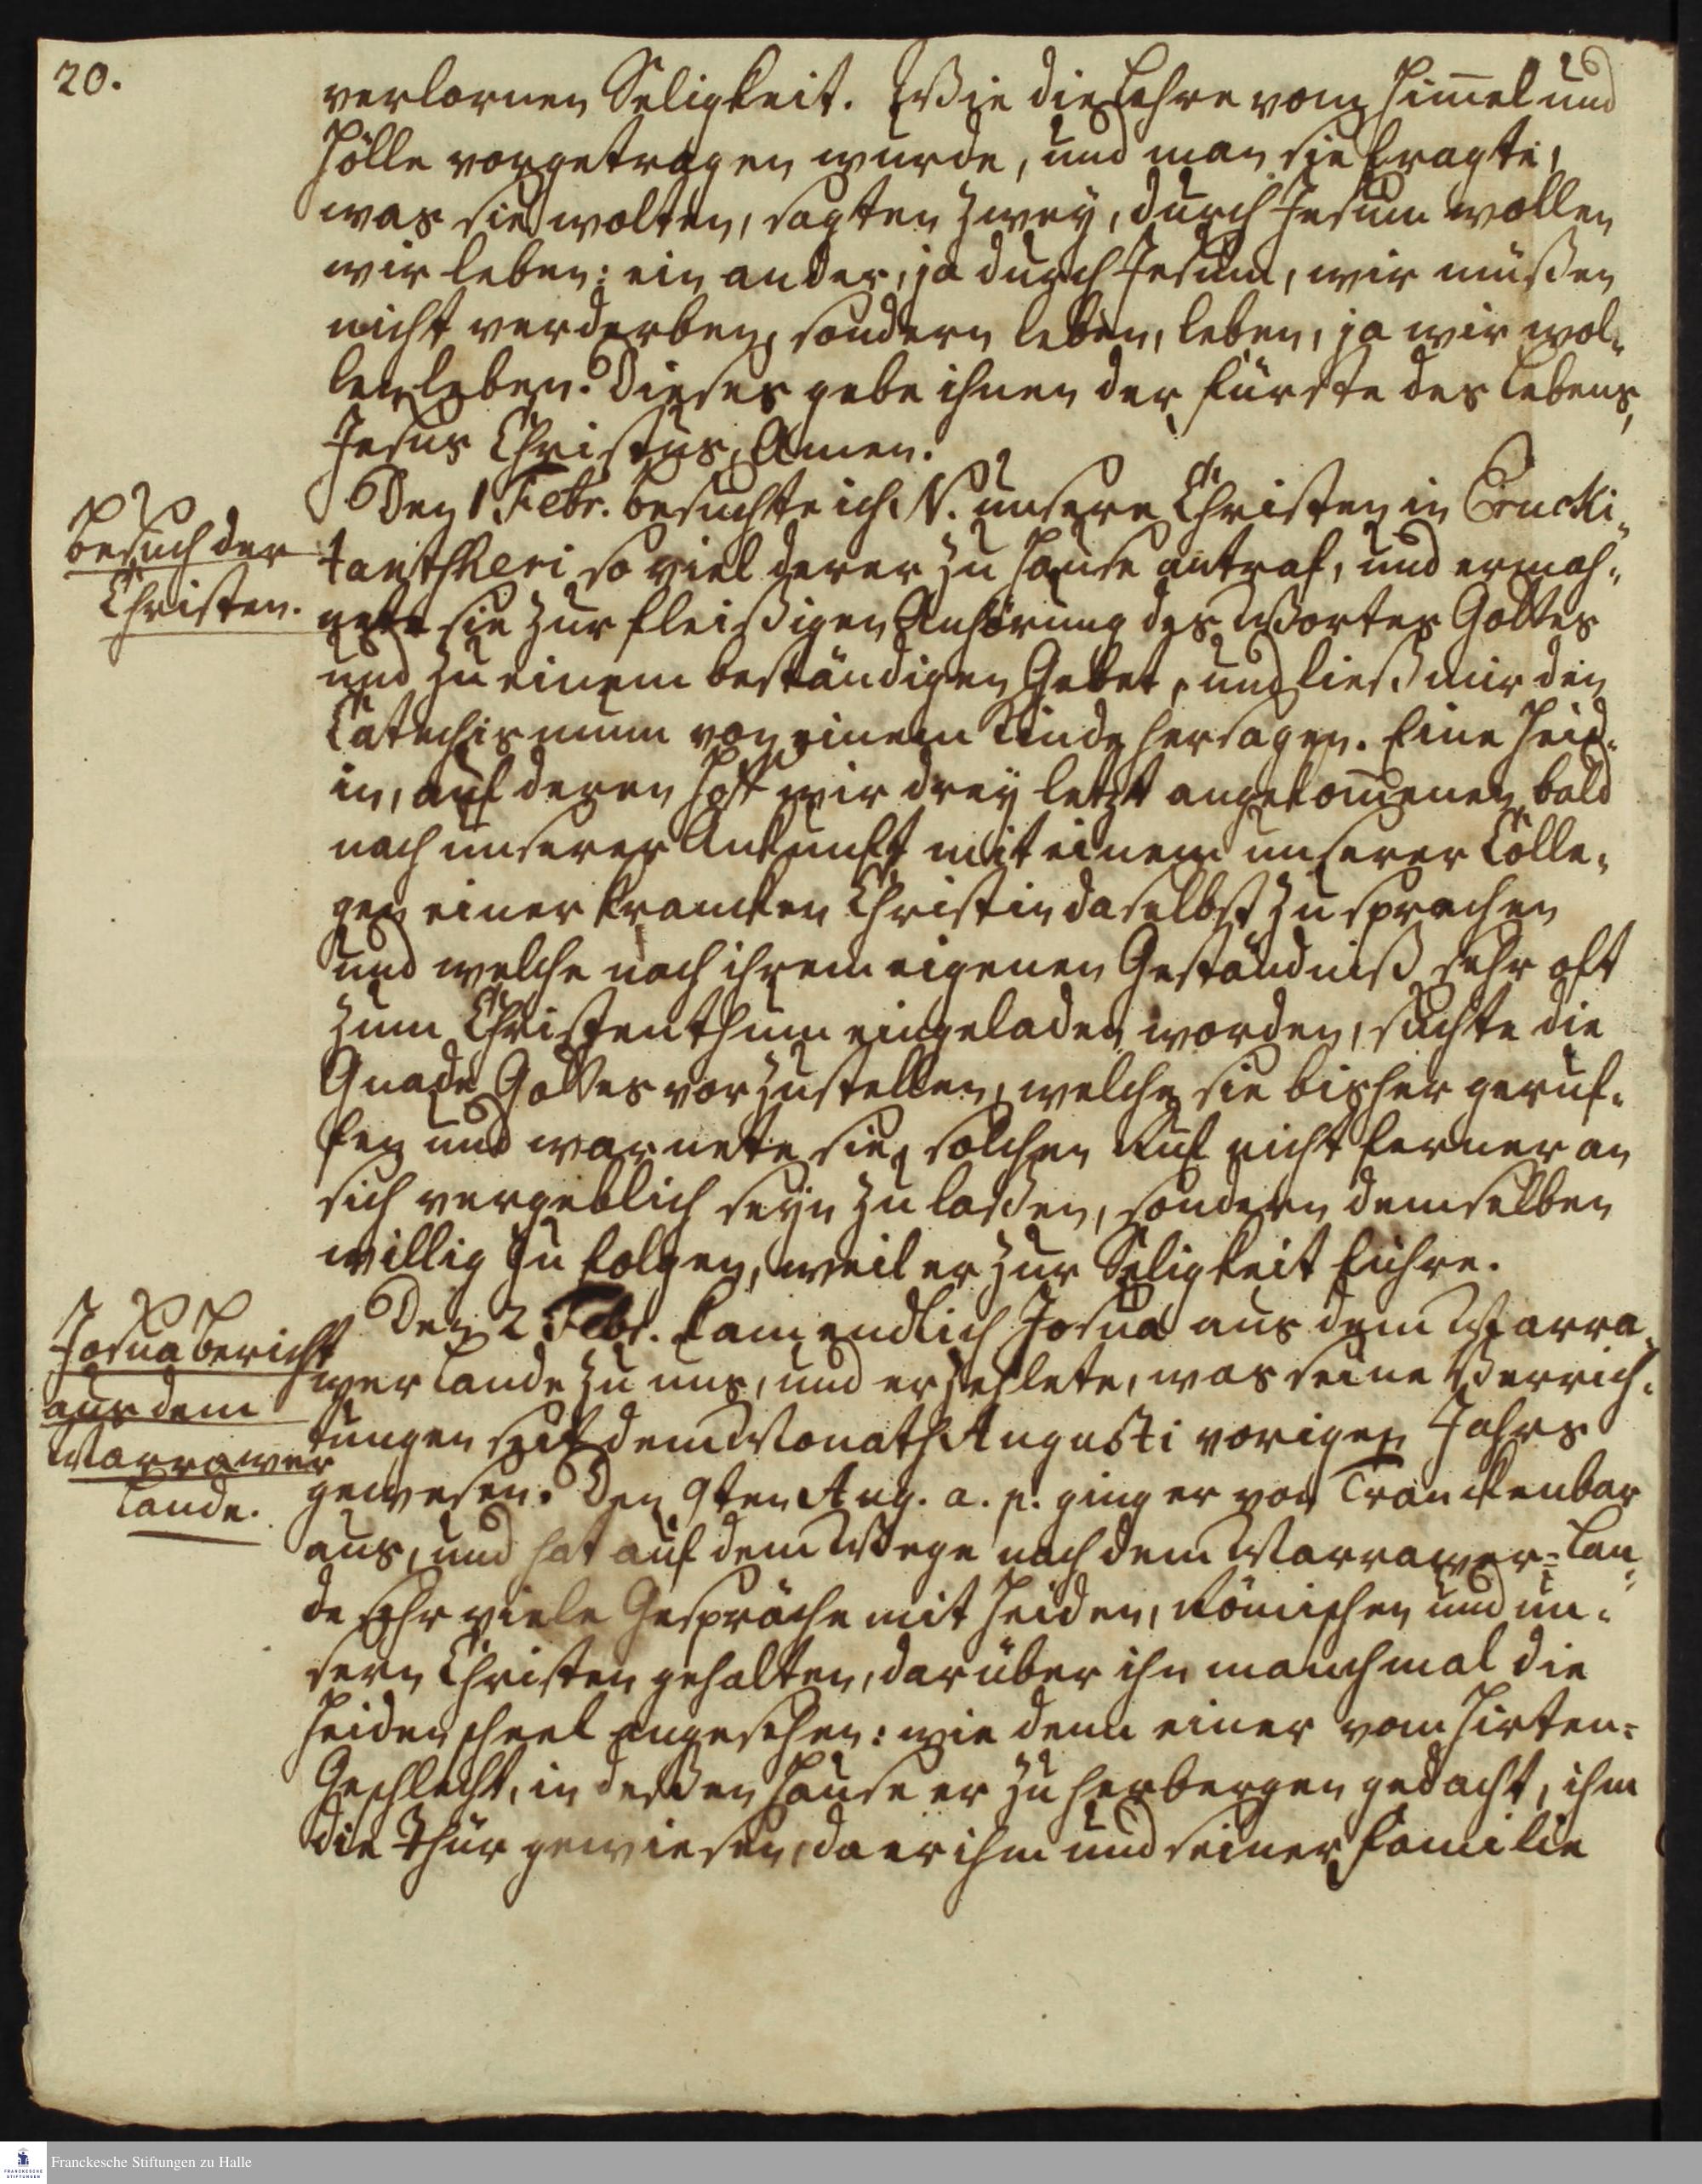 20.
verlornen Seligkeit. Wie die Lehre vom Him̄el und
Hölle vorgetragen wurde, und man sie fragte,
was sie wolten, sagten zwey, durch Jesum wollen
wir leben: ein ander, ja durch Jesum, wir müßen
nicht verderben, sondern leben, leben, ja wir wol-
len leben. Dieses gebe ihnen der Fürste des Lebens,
Jesus Christus, Amen.
Besuch der
Christen.
Den 1 Febr. besuchte ich N. unsere Christen in
tantsheri so viel derer zu Hause antraf, und ermah-
nete sie zur fleißigen Anhörung des Wortes Gottes
und zu einem beständigen Gebet, und ließ mir den
Catechismum von einem Kinde hersagen. Eine Heid-
in, auf deren Hoff wir drey letzt angekom̄enen bald
nach unserer Ankunft mit einem unserer Colle-
gen einer krancken Christin daselbst zusprachen
und welche nach ihrem eigenen Geständniß sehr oft
zum Christenthum eingeladen worden, suchte die
Gnade Gottes vorzustellen, welche sie bisher geruf-
fen und warnete sie, solchen Ruf nicht ferner an
sich vergeblich seyn zu laßen, sondern demselben
willig zu folgen, weil er zur Seligkeit führe.
Josua bericht
aus dem
Marrawer
Lande.
Den 2 Febr. kam endlich Josua aus dem Marra-
wer Lande zu uns, und erzehlete, was seine Verrich-
tungen seit dem Monath Augusti vorigen Jahrs
gewesen. Den 9ten Aug. a. p. ging er von Tranckenbar
aus, und hat auf dem Wege nach dem Marrawer-Lan-
de sehr viele Gespräche mit Heiden, Römischen und un-
sern Christen gehalten, darüber ihn manchmal die
Heiden scheel angesehen: wie denn einer vom Hirten-
Geschlecht, in deßen Hause er zu herbergen gedacht, ihm
die Thür gewiesen, da er ihm und seiner Familie
Franckesche Stiftungen zu Halle